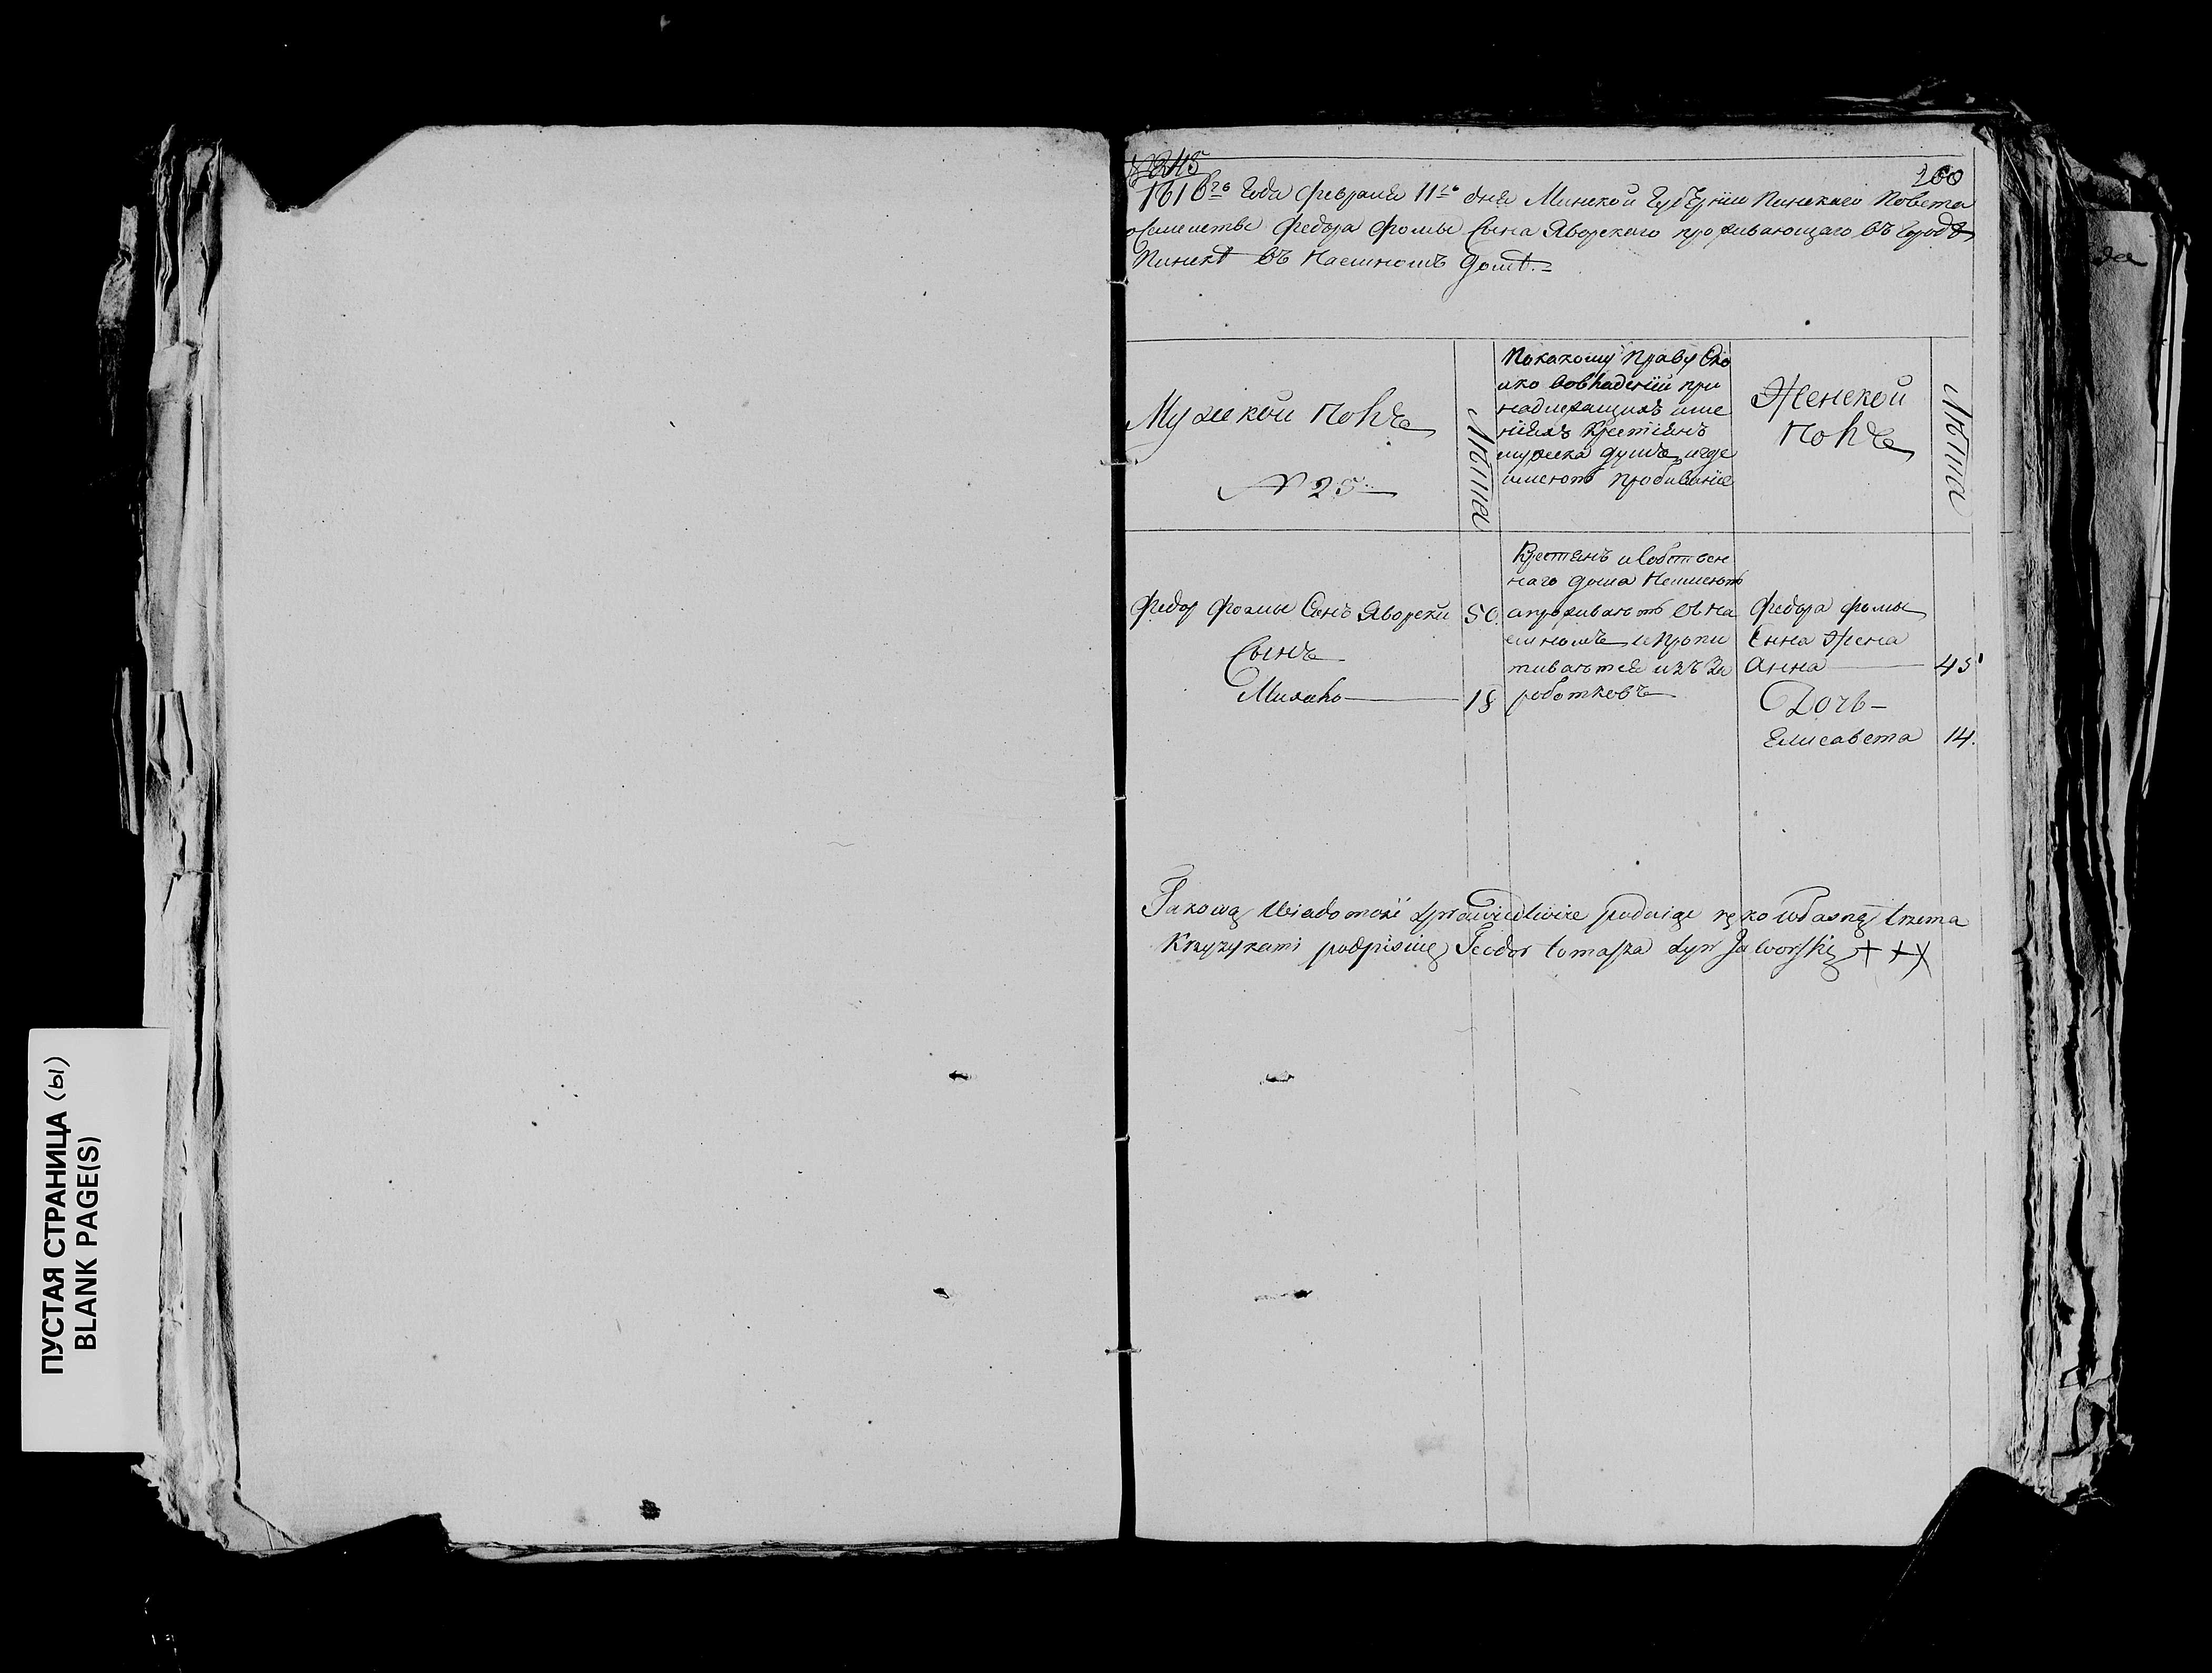 ПУСТАЯ СТРАНИЦА (ы)
BLANK PAGE(S)
200
1816го Года февраля 11го дня Минской Губернии Пинскаго Повета
о Семействе Федора Фомы Сына Яворскаго проживающаго въ городѣ
Пинскѣ въ Наемномъ домѣ.
Мужской полъ
№ 25
Лѣта
По какому Праву Ско
лко во владении при
надлежащихъ име
нияхъ Крестянъ
мужеска душъ и где
имеютъ пробивание
Женской
полъ
Лѣта
Федор Фомы Сынъ Яворски 50
Сынъ
Михало 18
Крестянъ и собствен
наго дома Неимеютъ
а проживаютъ въ на
емномъ и пропи
тиваются изъ За
роботковъ
Федора Фомы
Сина Жена
Анна 45
Дочь
Елисавета 14.
Takową Wiadomość sprawiedliwie podaiąc ręko własną trzema
Krzyzykami podpisuię Teodor tomasza syn Jaworski + + X